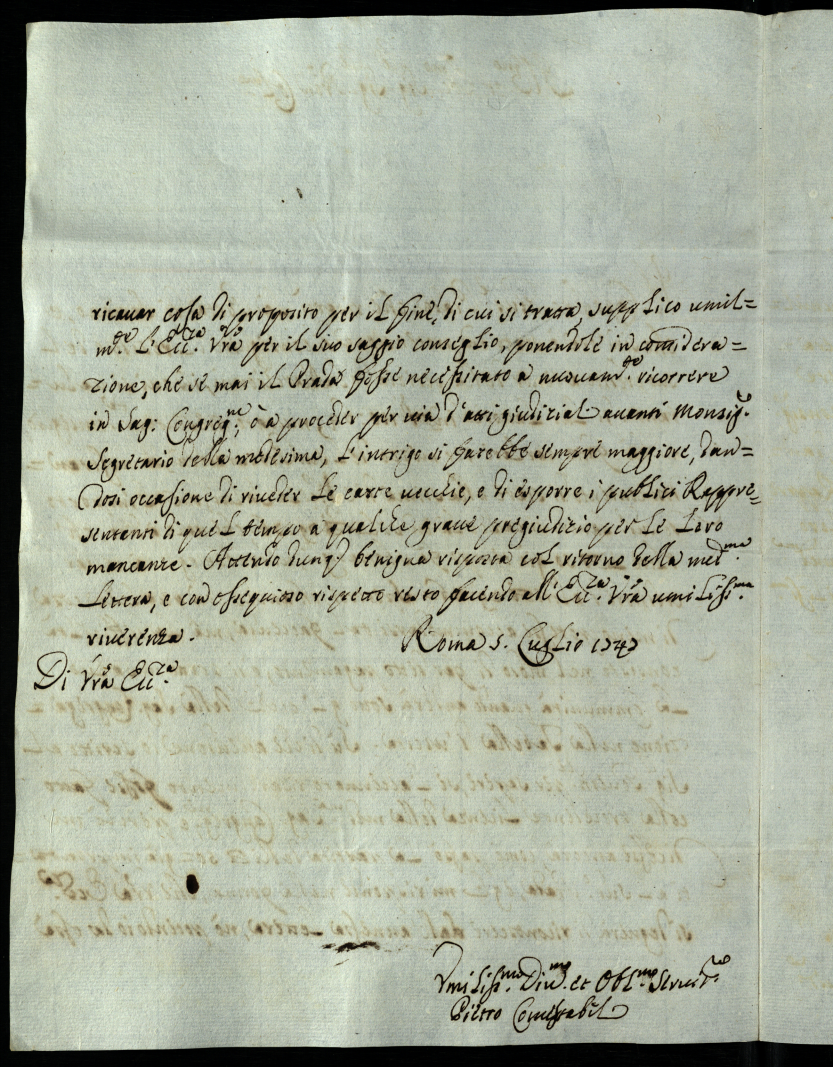 ricavar cosa di proposito per il fine, di cui si tratta, supplico umil=
m.te L'Ecc.za Vrã per il suo saggio conseglio, ponendole in considera=
zione, che se mai il Prada fosse necessitato a nuovam.te ricorrere
in Sag: Congreg.ne, ò a proceder per via d'atti giudiziali avanti Monsig.re
Segretario della medesima, l'intrigo si farebbe sempre maggiore, dan=
dosi occasione di riveder le carte vecchie, e di esporre i publici Rappre=
sentanti di quel tempo a qualche grave pregiudizio per le loro
mancanze. Attendo dunq3 benigna risposta col ritorno della med.ma
Lettera, e con ossequioso rispetto resto facendo all'Ecc.za Vrã umiliss.ma
riverenza. Roma 5. Luglio 1747
Di Vrã Ecc.za
Vmiliss.mo Div.mo et Obl.mo Servit.re
Pietro Conestabil